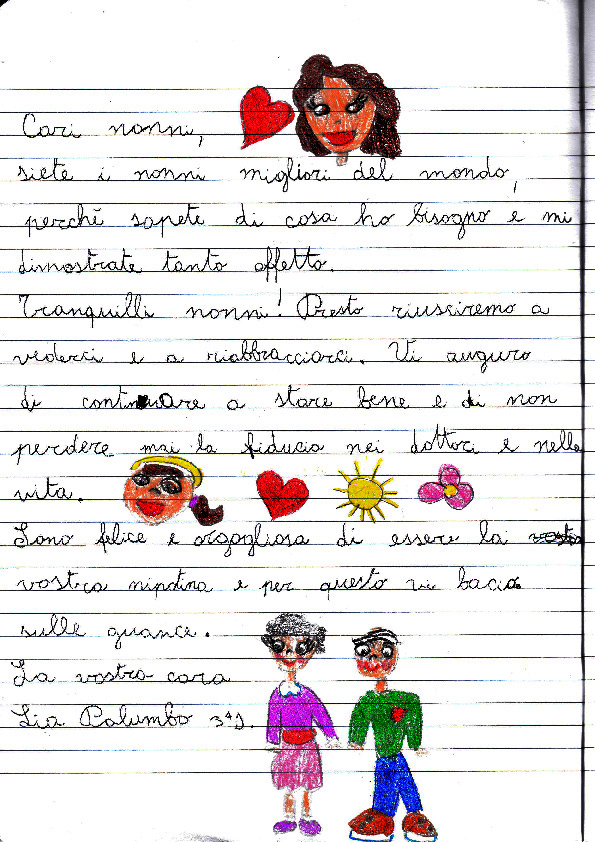 Cari nonni,
siete i nonni migliori del mondo,
perché sapete di cosa ho bisogno e mi
dimostrate tanto affetto.
Tranquilli nonni! Presto riusciremo a
vederci e a riabbracciarci. Vi auguro
di continuare a stare bene e di non
perdere mai la fiducia nei dottori e nella
vita.
Sono felice e orgogliosa di essere la
vostra nipotina e per questo vi bacio
sulle guance.
La vostra cara
Lia Palumbo